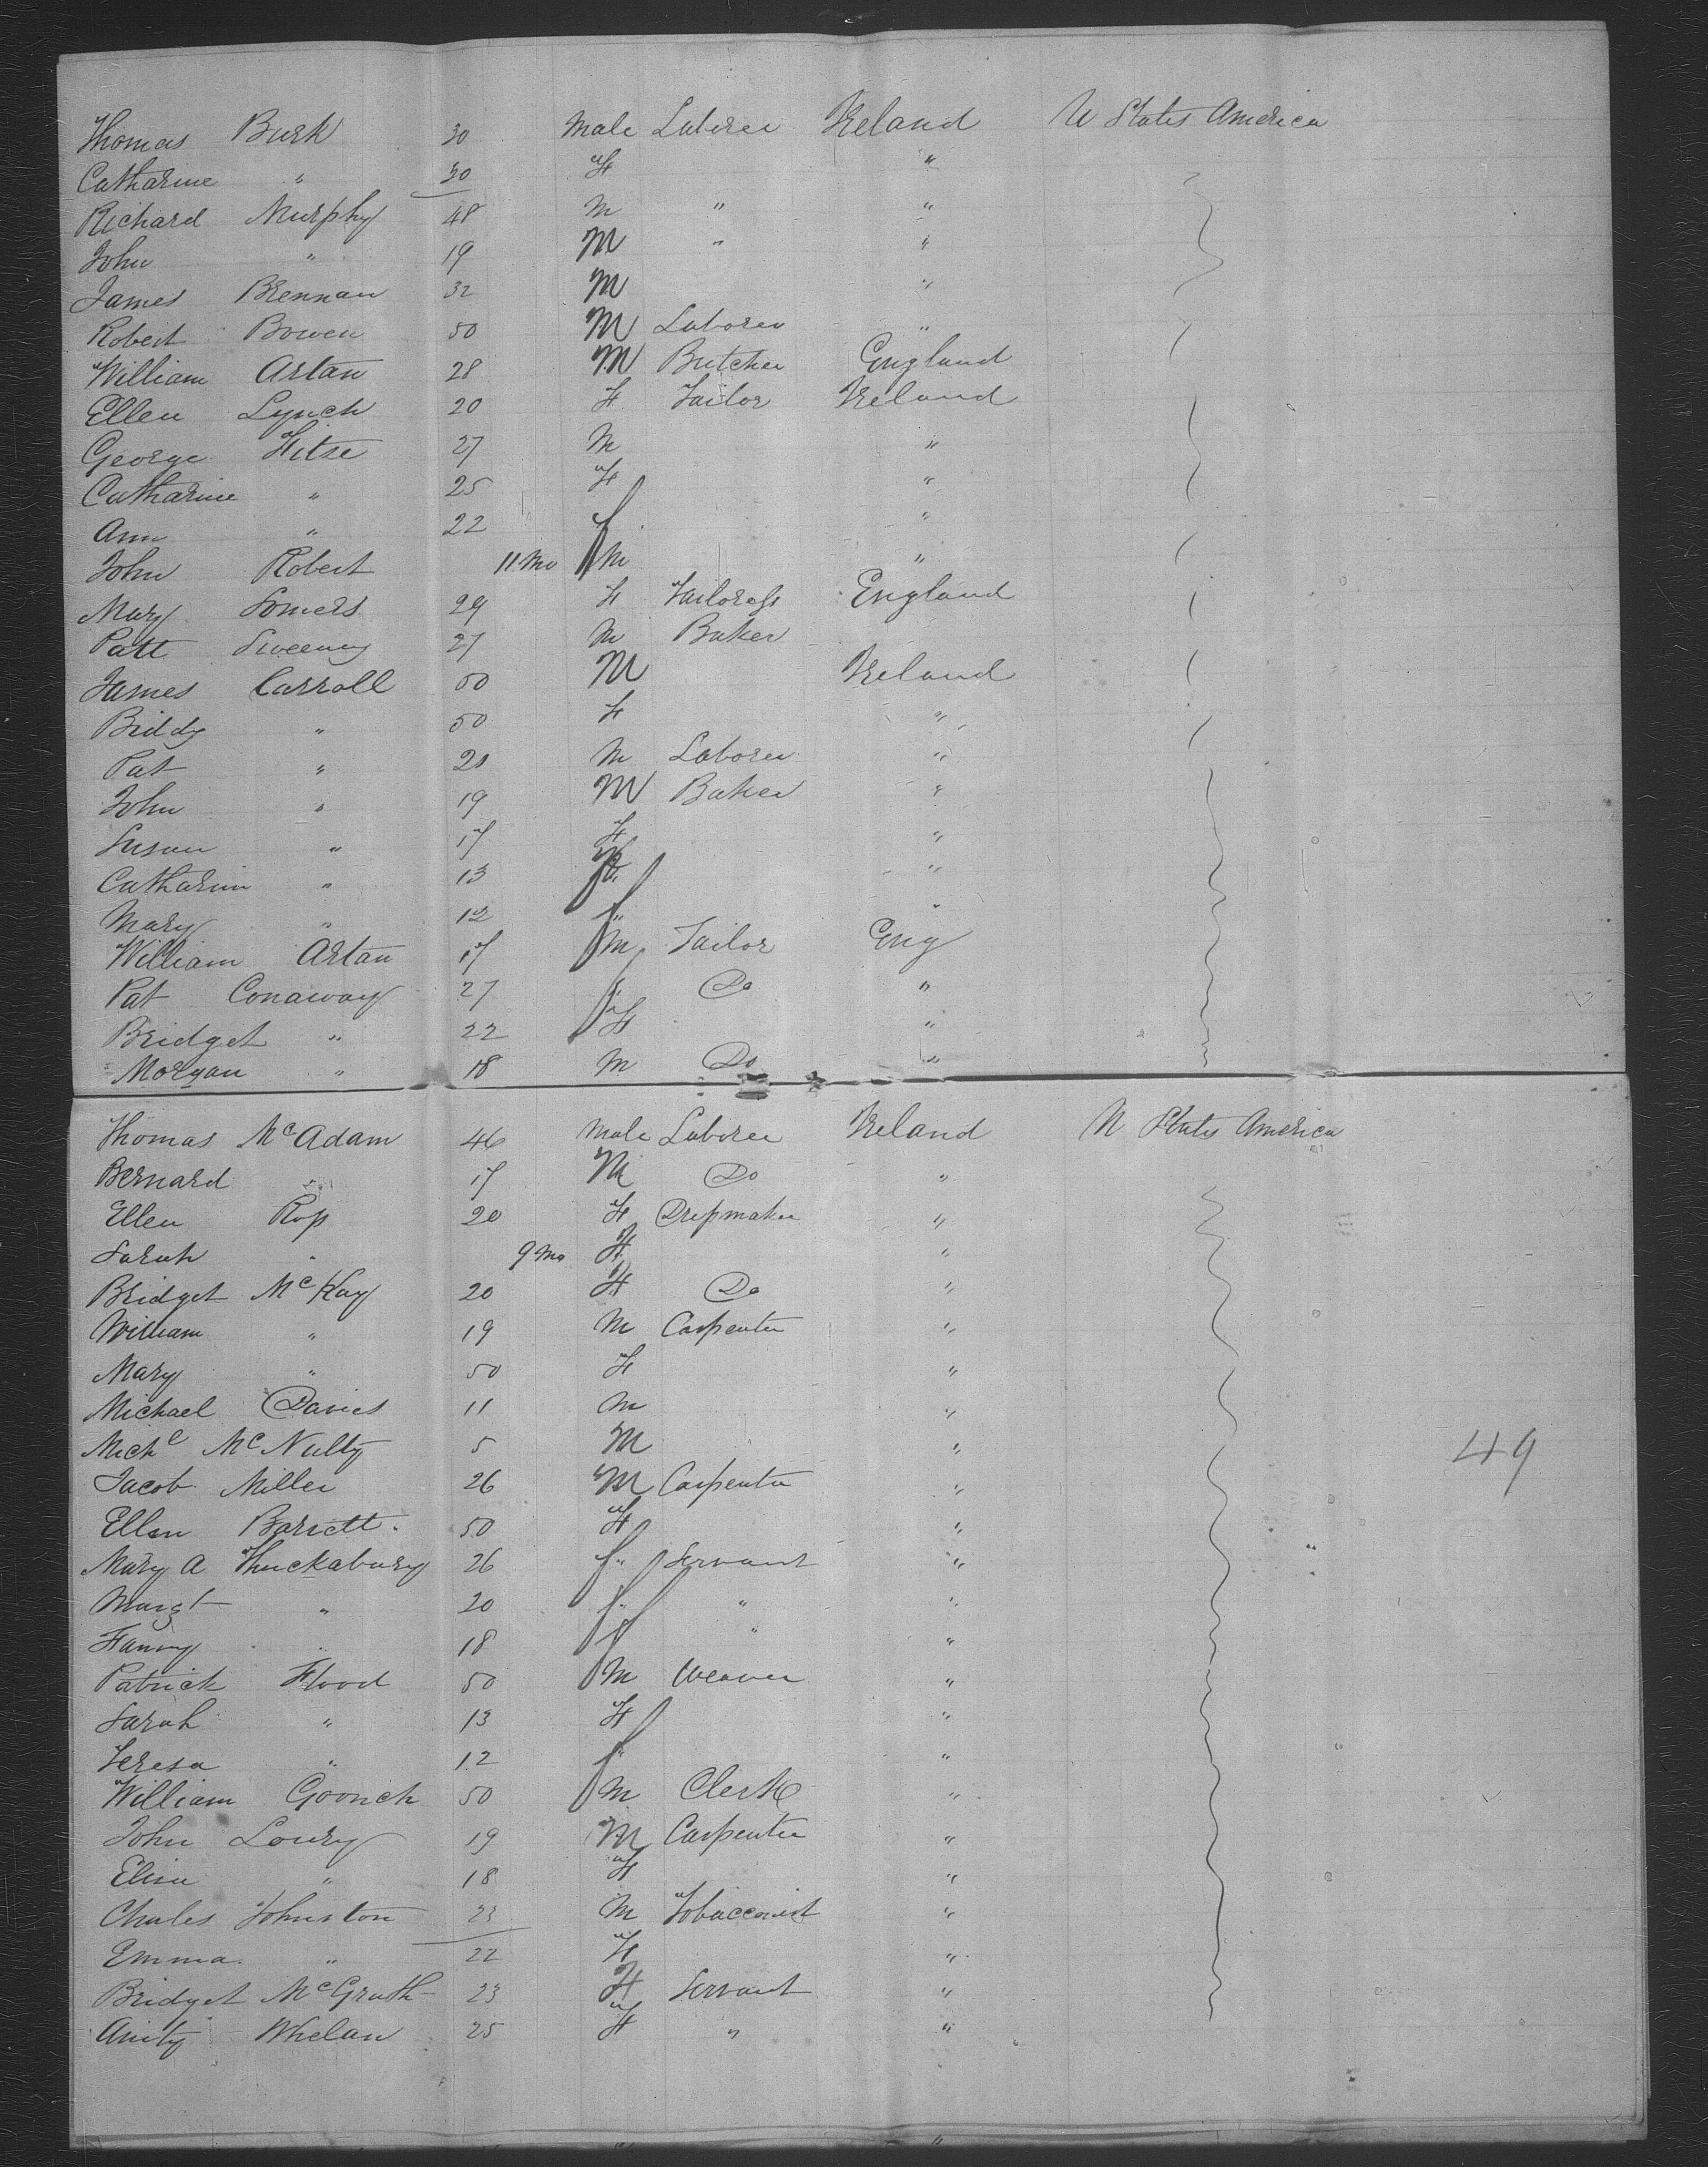 Thomas Burk 30 Male Laborer Ireland U States America
Catharine " 30 F "
Richard Murphy 48 M " "
John " 19 M " "
James Brennan 32 M "
Robert Bowen 50 M Laborer "
William Artan 28 M Butcher England
Ellen Lynch 20 F Tailor Ireland
George 27 M "
Catharine " 25 F "
Ann " 22 f "
John Robert 11 Mo M "
Mary Somers 29 F Tailoress England
Patt Sweeney 27 M Baker
James Carroll 50 M Ireland
Biddy " 50 F "
Pat " 20 M Laborer "
John " 19 M Baker "
Susan " 17 F "
Catharin " 13 "
Mary " 12 f "
William Artan 17 M Tailor Eng
Pat Conaway 27 " Do "
Bridget " 22 F "
Morgan " 18 M Do "
Thomas McAdam 46 Male Laborer Ireland U States America
Bernard " 17 M Do "
Ellen Ross 20 F Dressmaker "
Sarah " 9 Mo F "
Bridget McKay 20 F Do "
William " 19 M Carpenter "
Mary " 50 F "
Michael Davies 11 M "
Michl McNulty 5 M " 49
Jacob Miller 26 M Carpenter "
Ellen Barrett 50 F "
Mary A Huckabury 26 f Servant "
Margt " 20 f " "
Fanny " 18 f " "
Patrick Flood 50 M Weaver "
Sarah " 13 F "
Teresa " 12 f "
William Goonch 50 M Clerk "
John Loury 19 M Carpenter "
Eliza " 18 F "
Charles Johnston 23 M Tobacconist "
Emma " 22 F "
Bridget McGrath 23 F Servant "
Anity Whelan 25 F " "